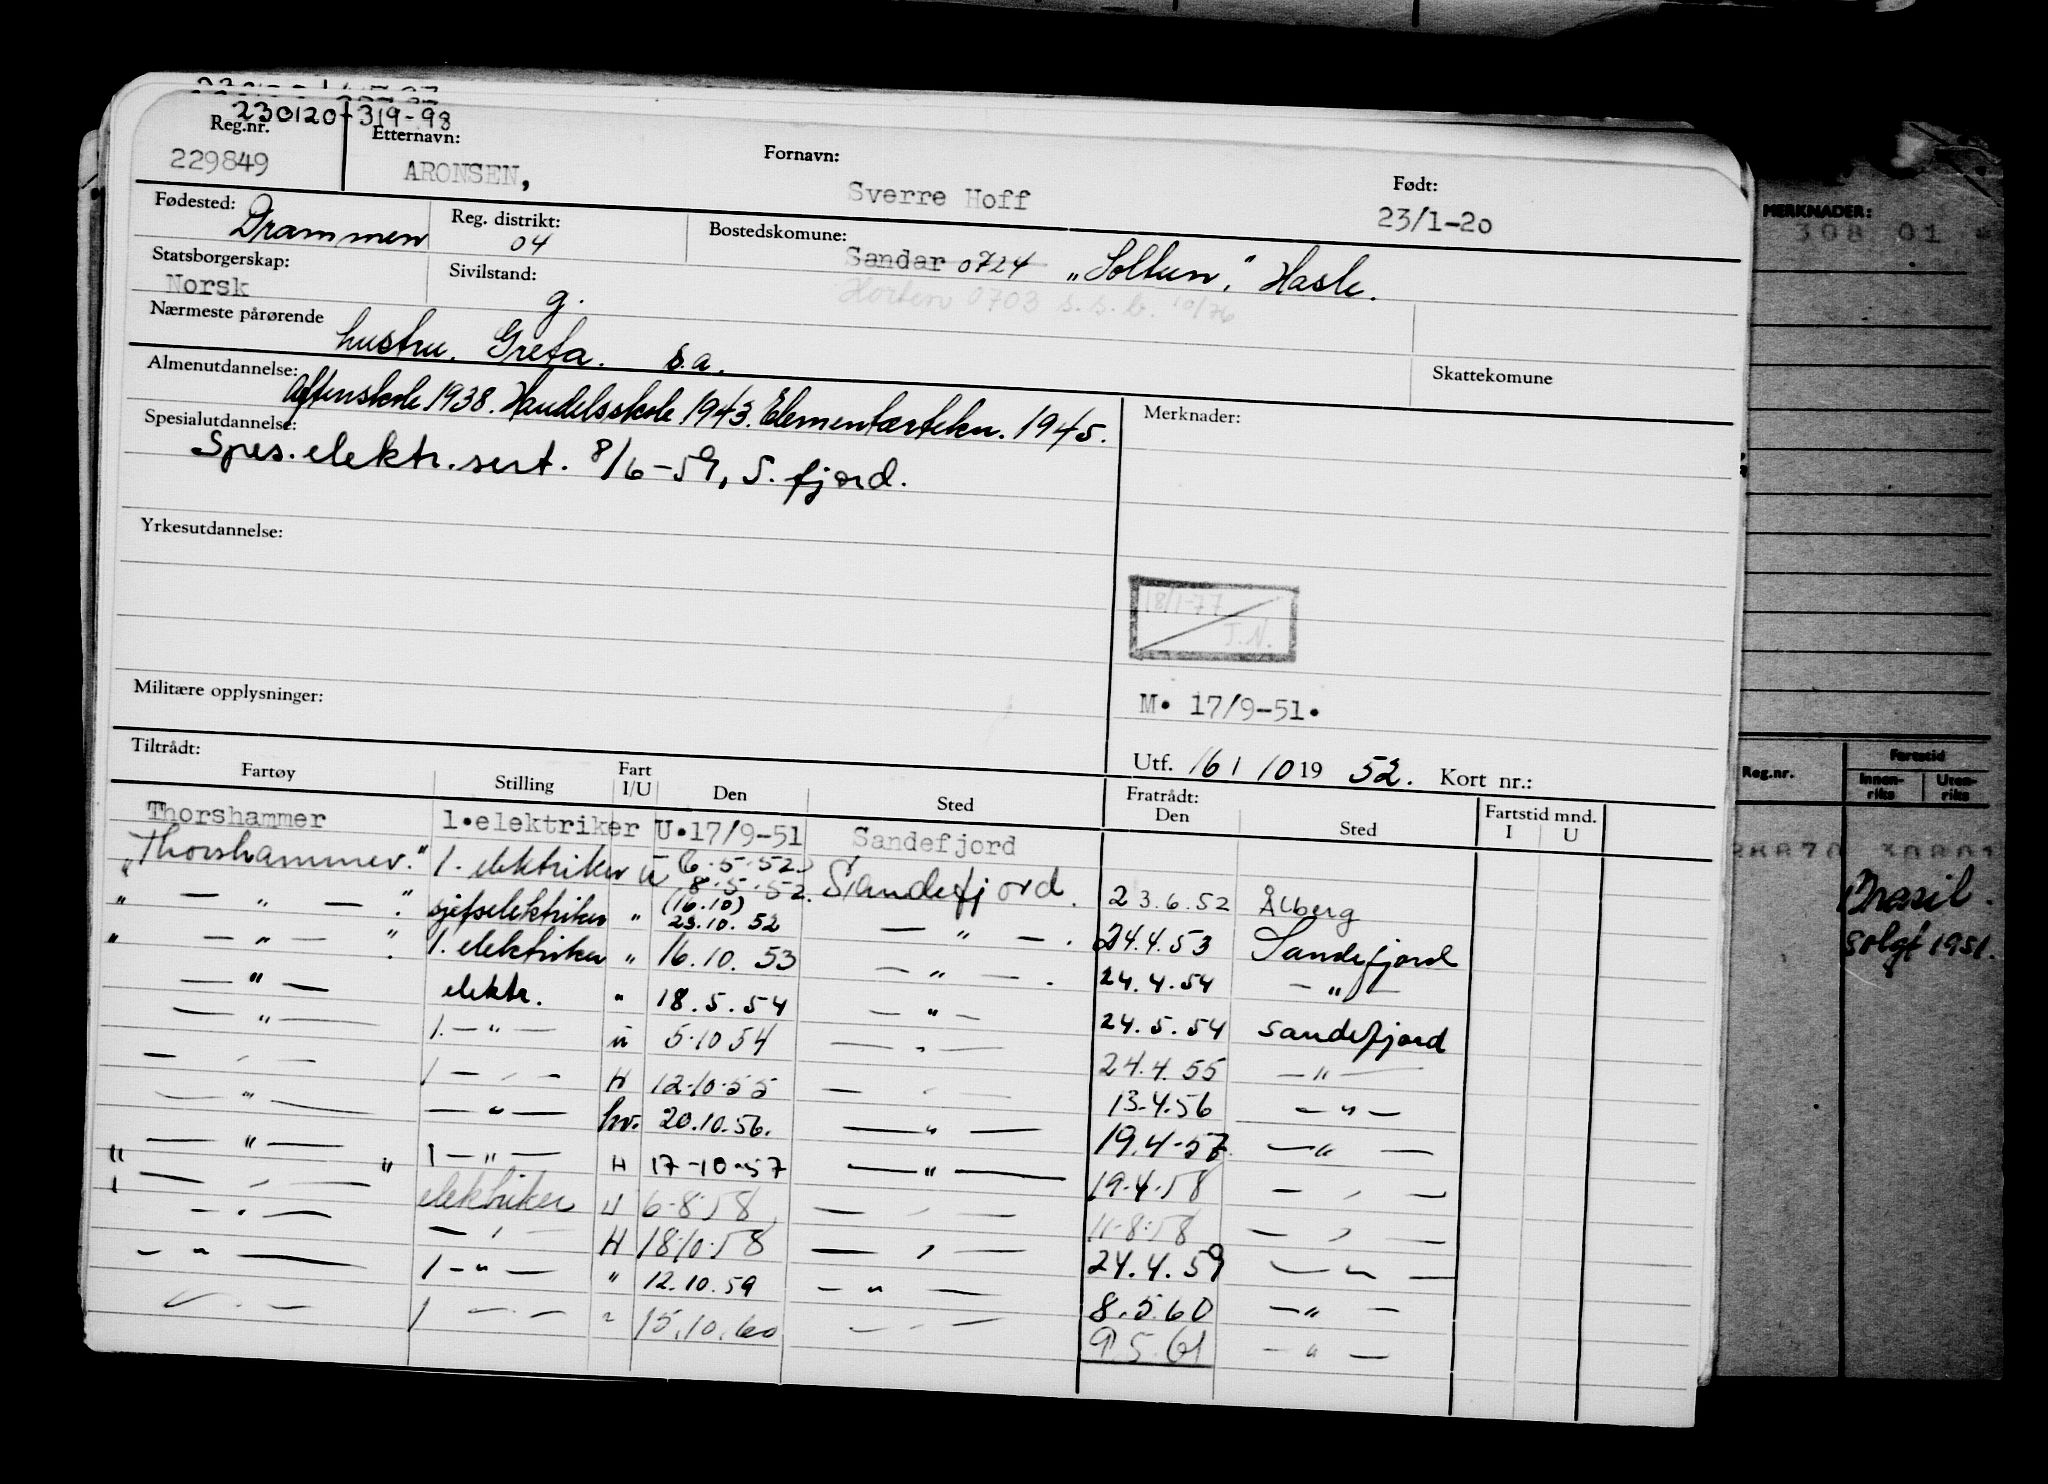 230120-319-98
Reg.nr. Etternavn: Fornavn: Født:
229849 ARONSEN, Sverre Hoff 23/1-20
Fødested: Drammen Reg. distrikt: 04 Bostedskomune: Sandar 0724 "Soltun," Hasle.
Statsborgerskap: Norsk Sivilstand: g. Horten 0703 s.s.b. 10/76
Nærmeste pårørende hustru. Greta. s.a.
Almenutdannelse: Aftenskole 1938. Handelsskole 1943. Elementærtekn. 1945. Skattekomune
Spesialutdannelse: Spes. elektr. sert. 8/6-59, S. fjord. Merknader:
Yrkesutdannelse:
18/1-77
J.N.
Militære opplysninger: M. 17/9-51.
Utf. 16/10 1952. Kort nr.:
Tiltrådt: Fratrådt: Fartstid mnd.
Fartøy Stilling Fart I/U Den Sted Den Sted I U
Thorshammer 1.elektriker U. 17/9-51 Sandefjord
"Thorshammer." 1. elektriker U (6.5.52) 8.5.52. Sandefjord. 23.6.52 Ålberg
" — " — " sjefselektriker " (16.10) 23.10.52 — " — . 24.4.53 Sandefjord
" — " — " 1. elektriker " 16.10.53 — " — . 24.4.54 — " —
— " — elektr. " 18.5.54 — " — 24.5.54 Sandefjord
— " — 1. — " — U 5.10 54 — " — 24.4.55 — " —
— " — 1 — " — H 12.10.55 — " — 13.4.56 — " —
— " — — " — hv. 20.10.56. — " — 19.4.57. — " —
— " — 1 — " — H 17-10-57 — " — 19.4.58 — " —
" — " — " elektriker U 6.8.58 — " — 11.8.58 — " —
— " — — " — H 18.10.58 — " — 24.4.59 — " —
— " — 1 — " — " 12.10.59 — " — 8.5.60 — " —
— " — 1 — " — " 15.10.60 — " — 9.5.61 — " —
MERKNADER:
308 01
Reg.nr. Fartstid
Innenriks Utenriks
Brasil.
solgt 1951.